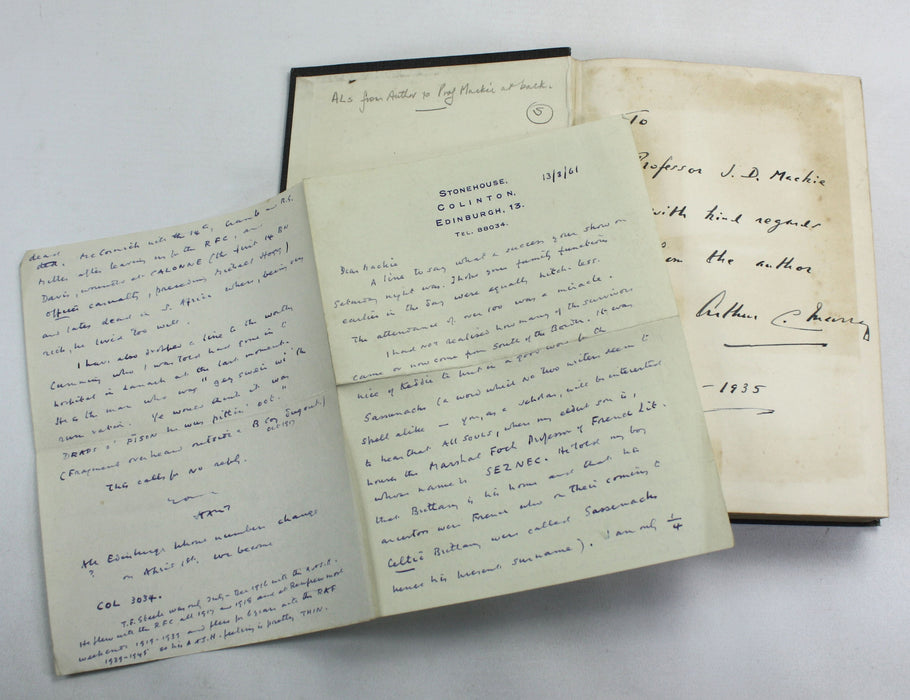 ALS from Author to Prof Mackie at back.
5
To
Professor J. D. Mackie
with kind regards
from the author
Arthur C. Murray
- 1935
STONEHOUSE,
COLINTON,
EDINBURGH, 13.
TEL. 88034.
13/3/61
Dear Mackie
A line to say what a success your show on
Saturday night was. I hope your family functions
earlier in the day were equally hitch-less.
The attendance of over 100 was a miracle.
I had not realised how many of the survivors
came or now come from South of the Border. It was
nice of Keddie to put in a good word for the
Sassenachs (a word which no two writers seem to
spell alike — you, as a scholar, will be interested
to hear that All SOULS, where my eldest son is,
houses the Marshal Foch Professor of French Lit.
whose name is SEZNEC. He told my boy
that Brittany is his home and that his
ancestors were French who on their coming to
Celtic Brittany were called Sassenachs
hence his present surname). I am only 1/4
dead. McCormick with the 14th, and R.S.
Miller after leaving us for the RFC, and
Davis, wounded at CALONNE (the first 14 BN
officer casualty, preceding Michael Hogg)
and later dead in S. Africa where, being very
rich, he lived too well.
I have also dropped a line to the worthy
Cumming who I was told had gone in to
hospital in Lanark at the last moment.
the man who was "gey sweir wi' the
rum ration. Ye would think it was
DRAPS o' PISON he was pittin' oot."
(Fragment overheard outside a B Coy dugout)
Oct 1917
This calls for no reply.
Yours
All Edinburgh phone numbers change
? on April 1st. We become
COL 3034.
T.B. was only July - Dec 1916 with the A.&S.H.
He flew with the RFC all 1917 and 1918 and at Renfrew most
weekends 1919-1939 and flew for 6 years with the RAF
1939-1945 so his A&SH feeling is pretty THIN.